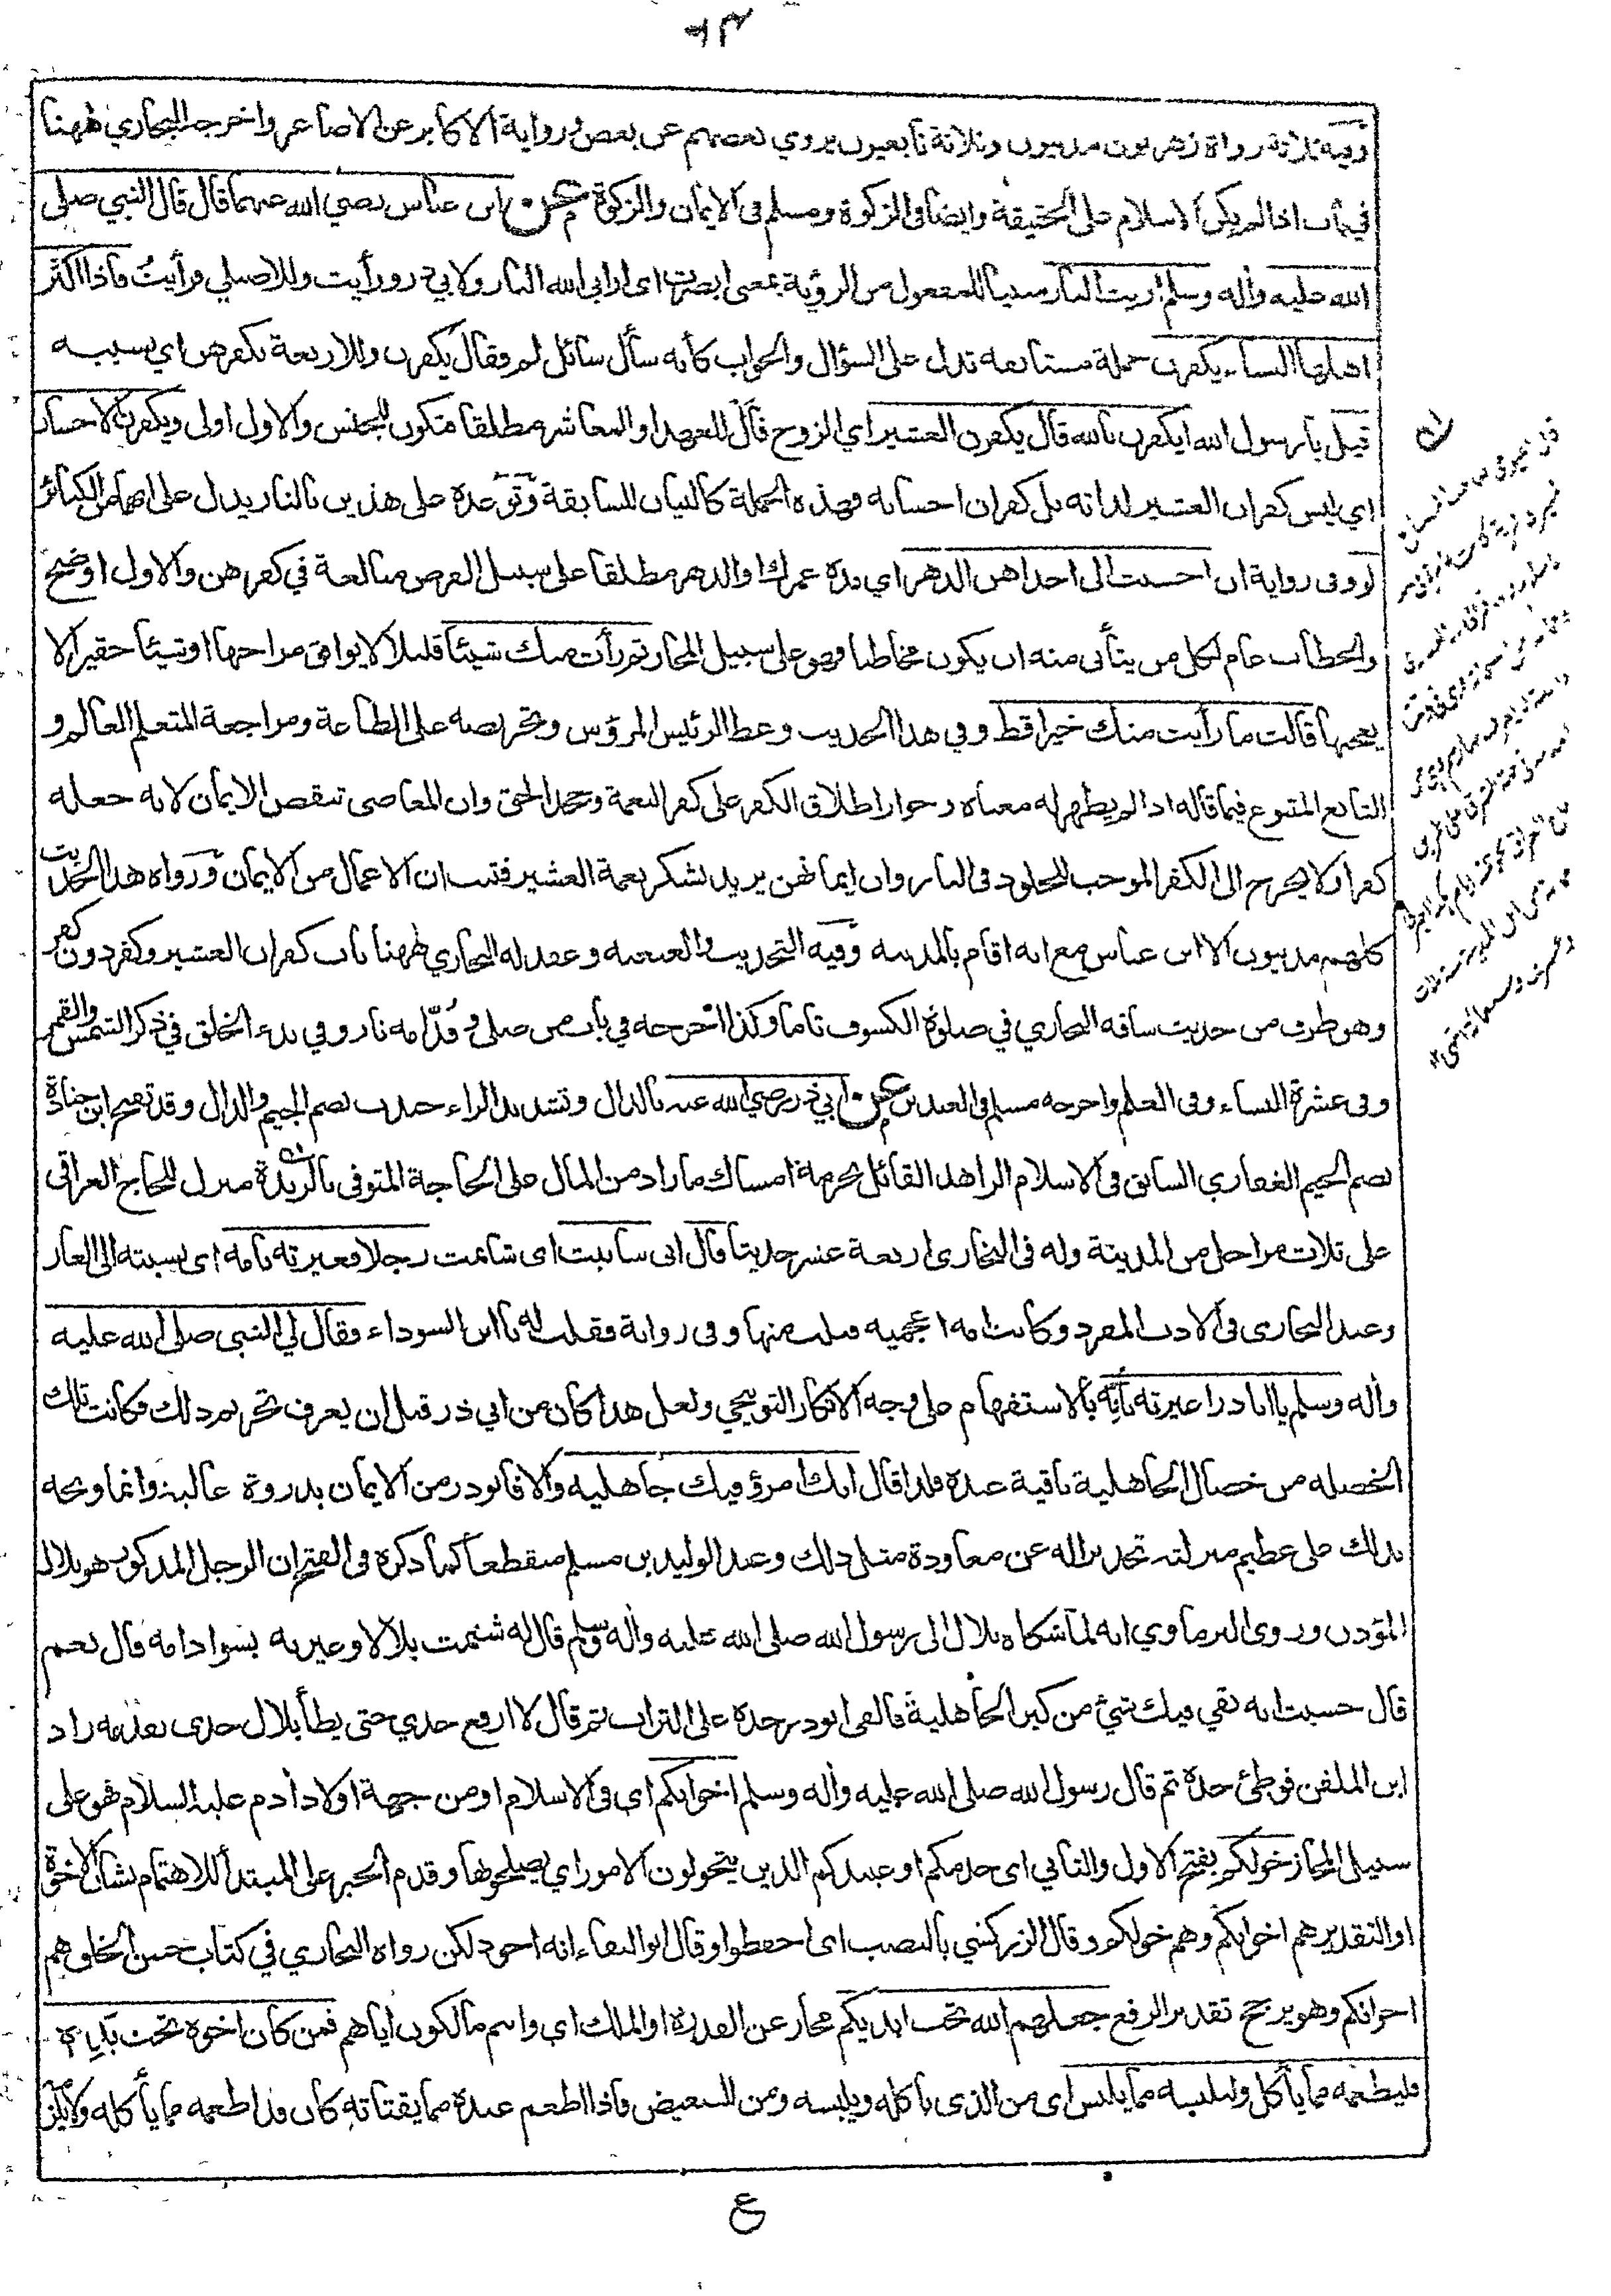 ٦٣
وفيه ثلاثة رواة زهريون مدنيون وثلاثة تابعيون يروي بعضهم عن بعض ورواية الاكابر عن الاصاغر واخرجه البخاري ههنا
في باب اذا لم يكن الاسلام على الحقيقة وايضا في الزكوة ومسلم في الايمان والزكوة عن ابن عباس رضي الله عنهما قال قال النبي صلى
الله عليه وأله وسلم اريت النار مبنيا للمفعول من الرؤية بمعنى ابصرت اى اراني الله النار ولابي ذر ورأيت وللاصيلي فرأيت فاذا اكثر
اهلها النساء يكفرن جملة مستانفة تدل على السؤال والجواب كأنه سأل سائل لم فقال يكفرن وللاربعة بكفرهن اي بسببه
قيل يا رسول الله ايكفرن بالله قال يكفرن العشير اي الزوج فأل للعهد او المعاشر مطلقا فتكون للجنس والاول اولى ويكفرن الاحسان
اي ليس كفران العشير لذاته بل كفران احسانه فهذه الجملة كالبيان للسابقة وتوعده على هذين بالنار يدل على انهما من الكبائر
لو وفى رواية ان احسنت الى احداهن الدهر اي مدة عمرك او الدهر مطلقا على سبيل الفرض مبالغة في كفرهن والاول اوضح
والخطاب عام لكل من يتأتى منه ان يكون مخاطبا فهو على سبيل المجاز ثم رأت منك شيئا قليلا لا يوافق مزاجها او شيئا حقيرا لا
يعجبها قالت ما رأيت منك خيرا قط وفي هذا الحديث وعظ الرئيس المرؤس وتحريضه على الطاعة ومراجعة المتعلم العالم و
التابع المتبوع فيما قاله اذا لم يظهر له معناه وجواز اطلاق الكفر على كفر النعمة وجحد الحق وان المعاصى تنقص الايمان لانه جعله
كفرا ولا يخرج الى الكفر الموجب للخلود فى النار وان ايمانهن يزيد بشكر نعمة العشير فثبت ان الاعمال من الايمان ورواه هذا الحديث
كلهم مدنيون الا ابن عباس مع انه اقام بالمدينة وفيه التحديث والعنعنه وعقد له البخاري ههنا باب كفران العشير وكفر دون كفر
وهو طرف من حديث ساقه البخاري في صلوة الكسوف تاما وكذا اخرجه في باب من صلى وقدّامه نار وفي بدء الخلق في ذكر الشمس والقمر
وفى عشرة النساء وفى العلم واخرجه مسلم فى العيدين عن ابي ذر رضي الله عنه بالذال وتشديد الراء جندب بضم الجيم والدال وقد تفتح ابن جنادة
بضم الجيم الغفاري السابق فى الاسلام الزاهد القائل بحرمة امساك ما زاد من المال على الحاجة المتوفى بالربذة منزل للحاج العراقى
على ثلاث مراحل من المدينة وله فى البخارى اربعة عشر حديثا قال انى ساببت اى شاتمت رجلا فعيرته بامه اى نسبته الى العار
وعند البخارى فى الادب المفرد وكانت امه اعجميه فنلت منها وفى رواية فقلت له يا ابن السوداء فقال لي النبى صلى الله عليه
وأله وسلم يا ابا ذر اعيرته بأمه بالاستفهام على وجه الانكار التوبيخي ولعل هذا كان من ابي ذر قبل ان يعرف تحريم ذلك فكانت تلك
الخصله من خصال الجاهلية باقية عنده فلذا قال انك امرؤ فيك جاهليه والا فابوذر من الايمان بذروة عالية وانما وبخه
بذلك على عظيم منزلته تحذيرا له عن معاودة مثل ذلك وعند الوليد بن مسلم منقطعا كما ذكره فى الفتح ان الرجل المذكور هو بلال
المؤذن وروى البرماوي انه لما شكاه بلال الى رسول الله صلى الله عليه وأله وسلم قال له شتمت بلالا وعيرته بسواد امه قال نعم
قال حسبت انه بقي فيك شئ من كبر الجاهلية فالقى ابوذر خده على التراب ثم قال لا ارفع خدي حتى يطأ بلال خدى بقدمه زاد
ابن الملقن فوطئ خده ثم قال رسول الله صلى الله عليه وأله وسلم اخوانكم اي فى الاسلام او من جهة اولاد أدم عليه السلام فهو على
سبيل المجاز خولكم بفتح الاول والثاني اى خدمكم او عبيدكم الذين يتخولون الامور اي يصلحونها وقدم الخبر على المبتدأ للاهتمام بشأن الاخوة
او التقدير هم اخوانكم وهم خولكم وقال الزركشي بالنصب اى احفظوا وقال ابو البقاء انه اجود لكن رواه البخاري في كتاب حسن الخلق هم
اخوانكم وهو يرجح تقدير الرفع جعلهم الله تحت ايديكم مجاز عن القدرة او الملك اي وانتم مالكون اياهم فمن كان اخوه تحت يده
فليطعمه مما يأكل وليلبسه مما يلبس اى من الذى يأكله ويلبسه ومن للتبعيض فاذا اطعم عبده مما يقتاته كان قد اطعمه مما يأكله ولا يلز
ع